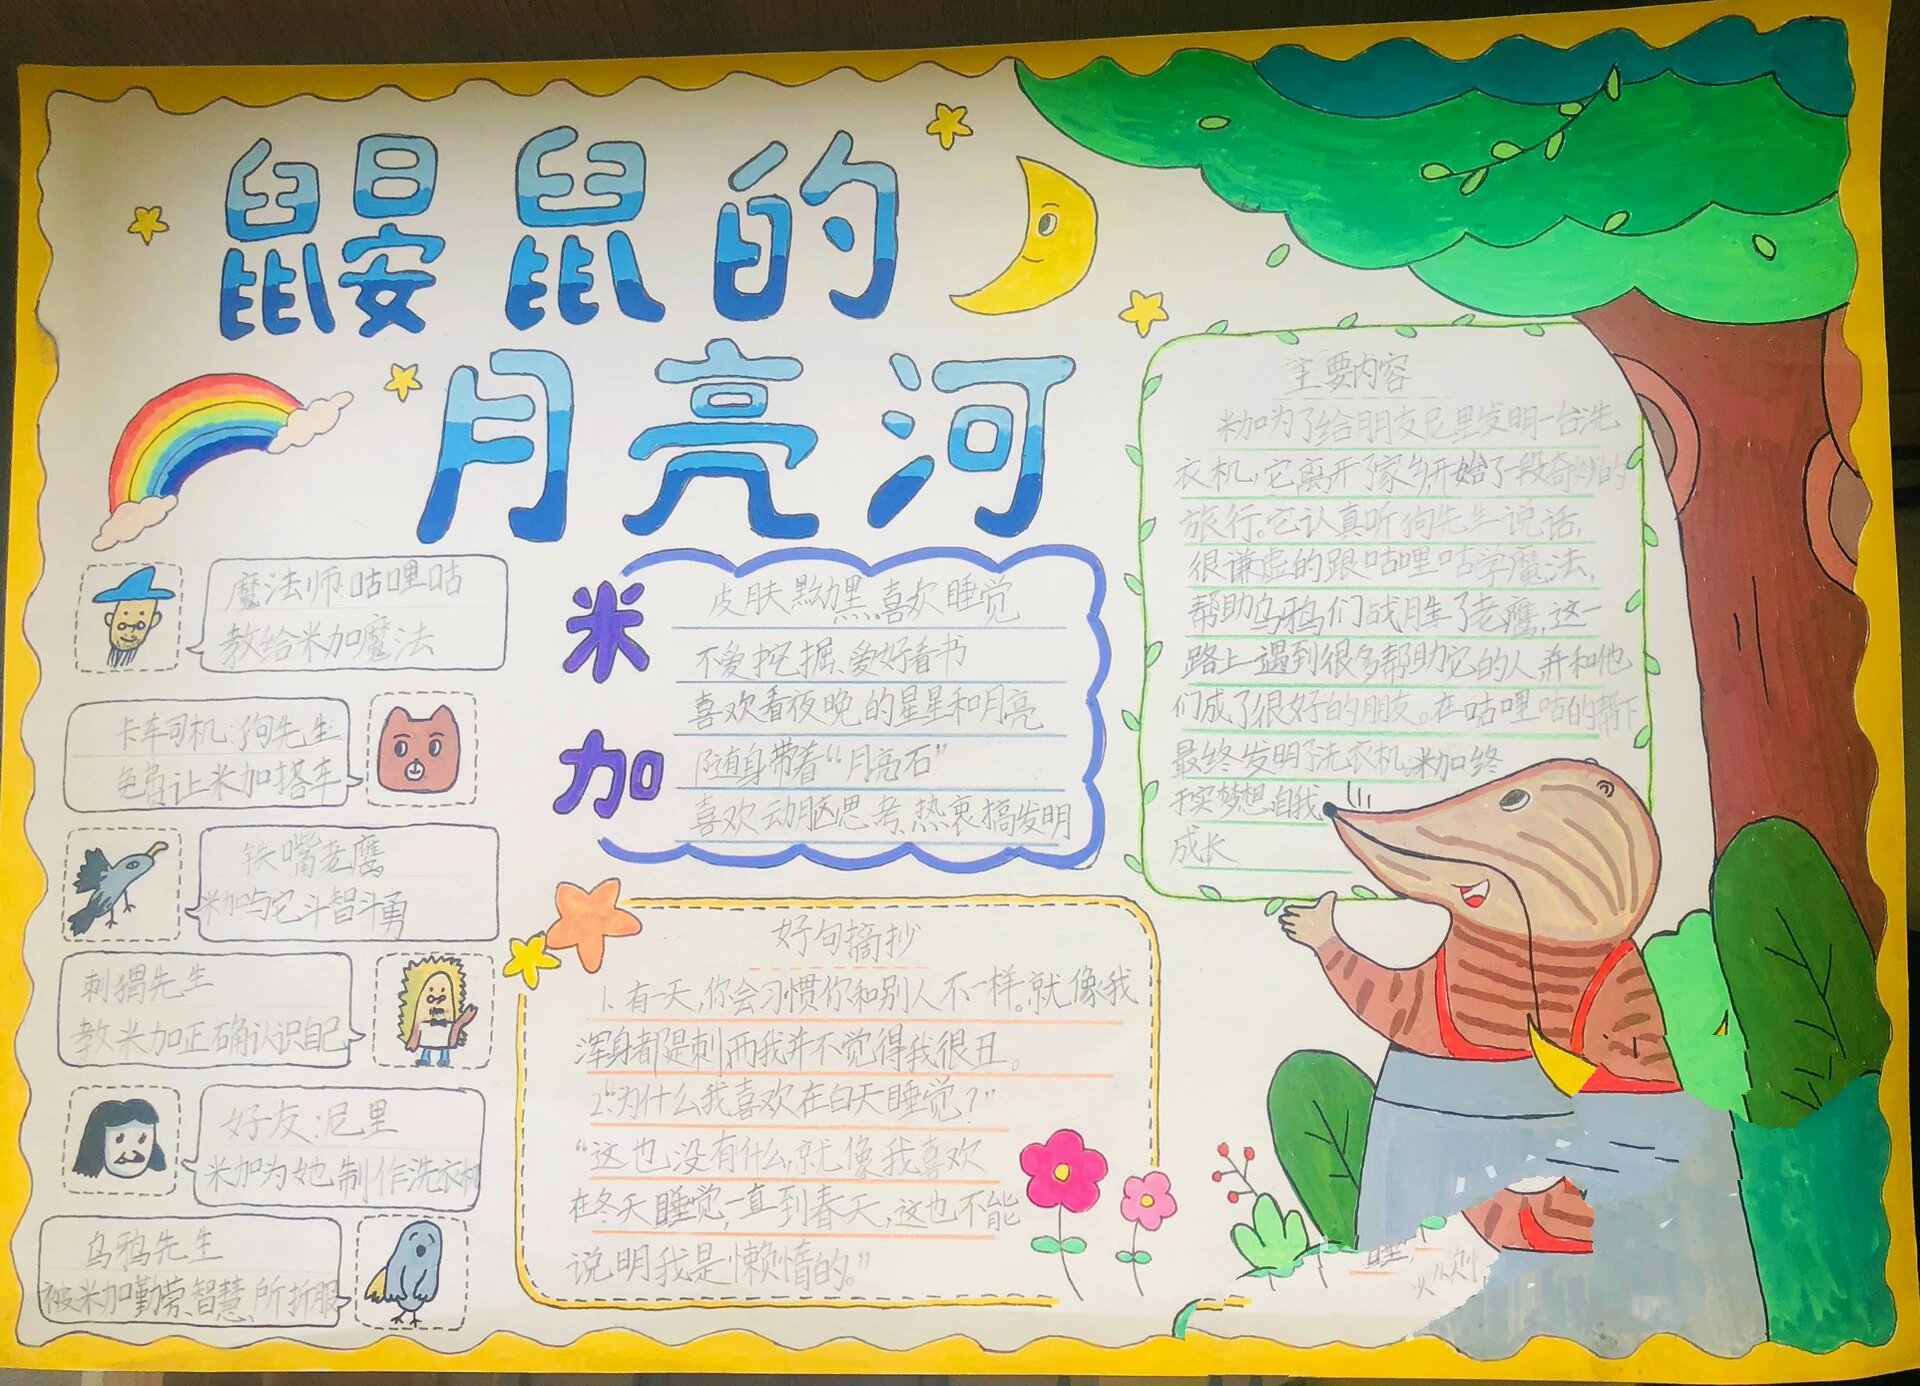 鼹鼠的
月亮河
魔法师:咕哩咕
教给米加魔法
卡车司机:狗先生
免费让米加搭车
铁嘴老鹰
米加与它斗智斗勇
刺猬先生
教米加正确认识自己
好友:尼里
米加为她制作洗衣机
乌鸦先生
被米加勤劳、智慧、所折服
米加
皮肤黝黑、喜欢睡觉
不爱挖掘、爱好看书
喜欢看夜晚的星星和月亮
随身带着“月亮石”
喜欢动脑思考、热衷搞发明
好句摘抄
1、有一天,你会习惯你和别人不一样。就像我
浑身都是刺,而我并不觉得我很丑。
2、“为什么我喜欢在白天睡觉?”
“这也没有什么,就像我喜欢
在冬天睡觉,一直到春天,这也不能
说明我是懒惰的。”
主要内容
米加为了给朋友尼里发明一台洗
衣机,它离开了家乡开始了一段奇妙的
旅行。它认真听狗先生说话,
很谦虚的跟咕哩咕学魔法,
帮助乌鸦们战胜了老鹰,这一
路上遇到很多帮助它的人,并和他
们成了很好的朋友。在咕哩咕的帮下
最终发明了洗衣机。米加终
于实梦想,自我
成长